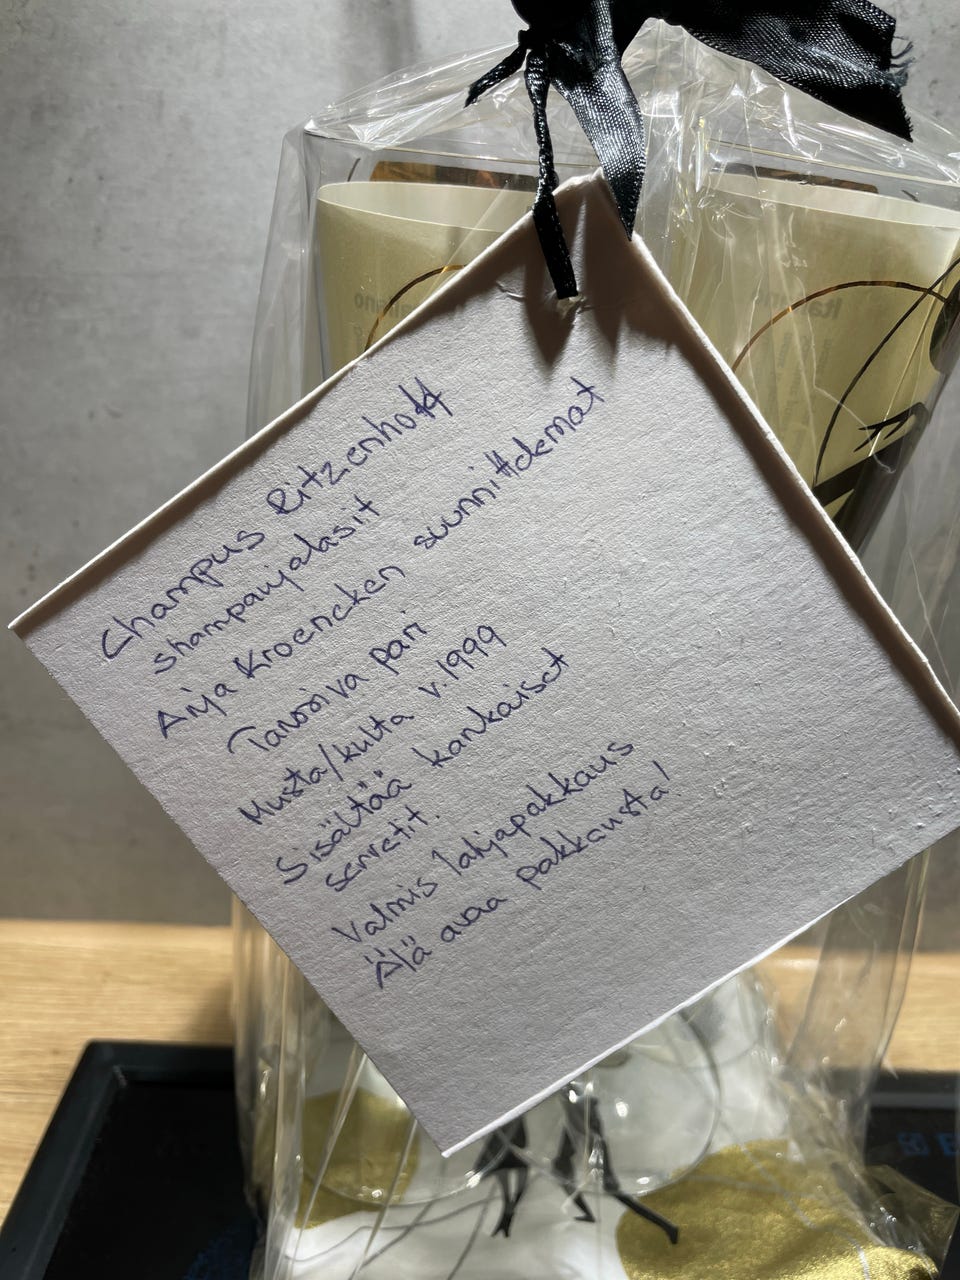 Champus Ritzenhoff
shampanjalasit
Anja Kroencken suunnittelemat
Tanssiva pari
Musta/kulta v.1999
Sisältää kankaiset
servetit.
Valmis lahjapakkaus
Älä avaa pakkausta!